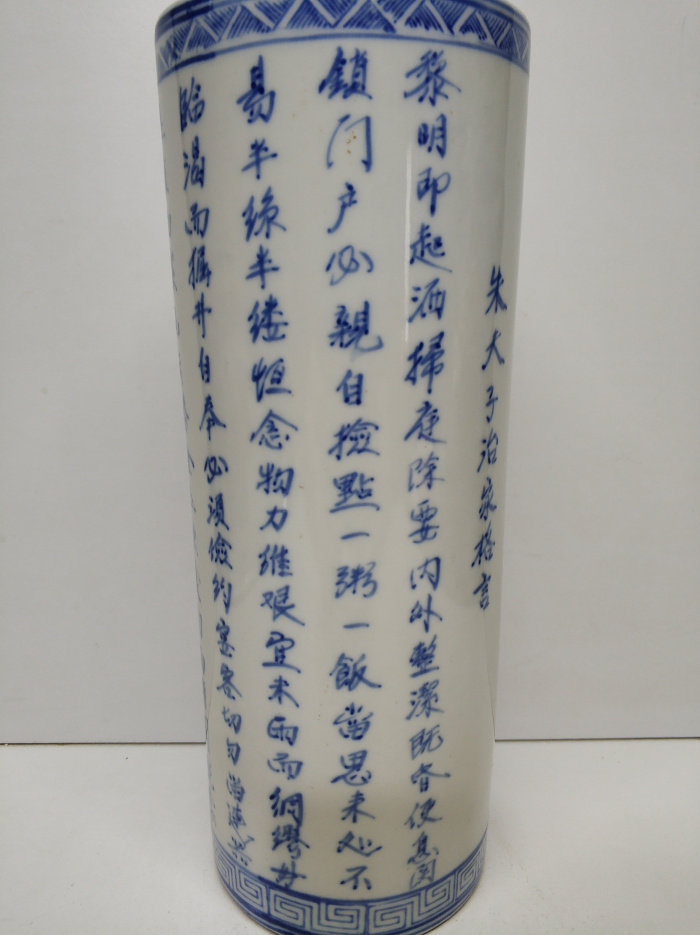 朱大子治家格言
黎明即起洒掃庭除要内外整潔既昏便息関
鎖门户必親自撿點一粥一飯當思来处不
易半絲半缕恒念物力維艰宜未雨而綢繆毋
臨渴而掘井自奉必須儉约宴客切勿留連